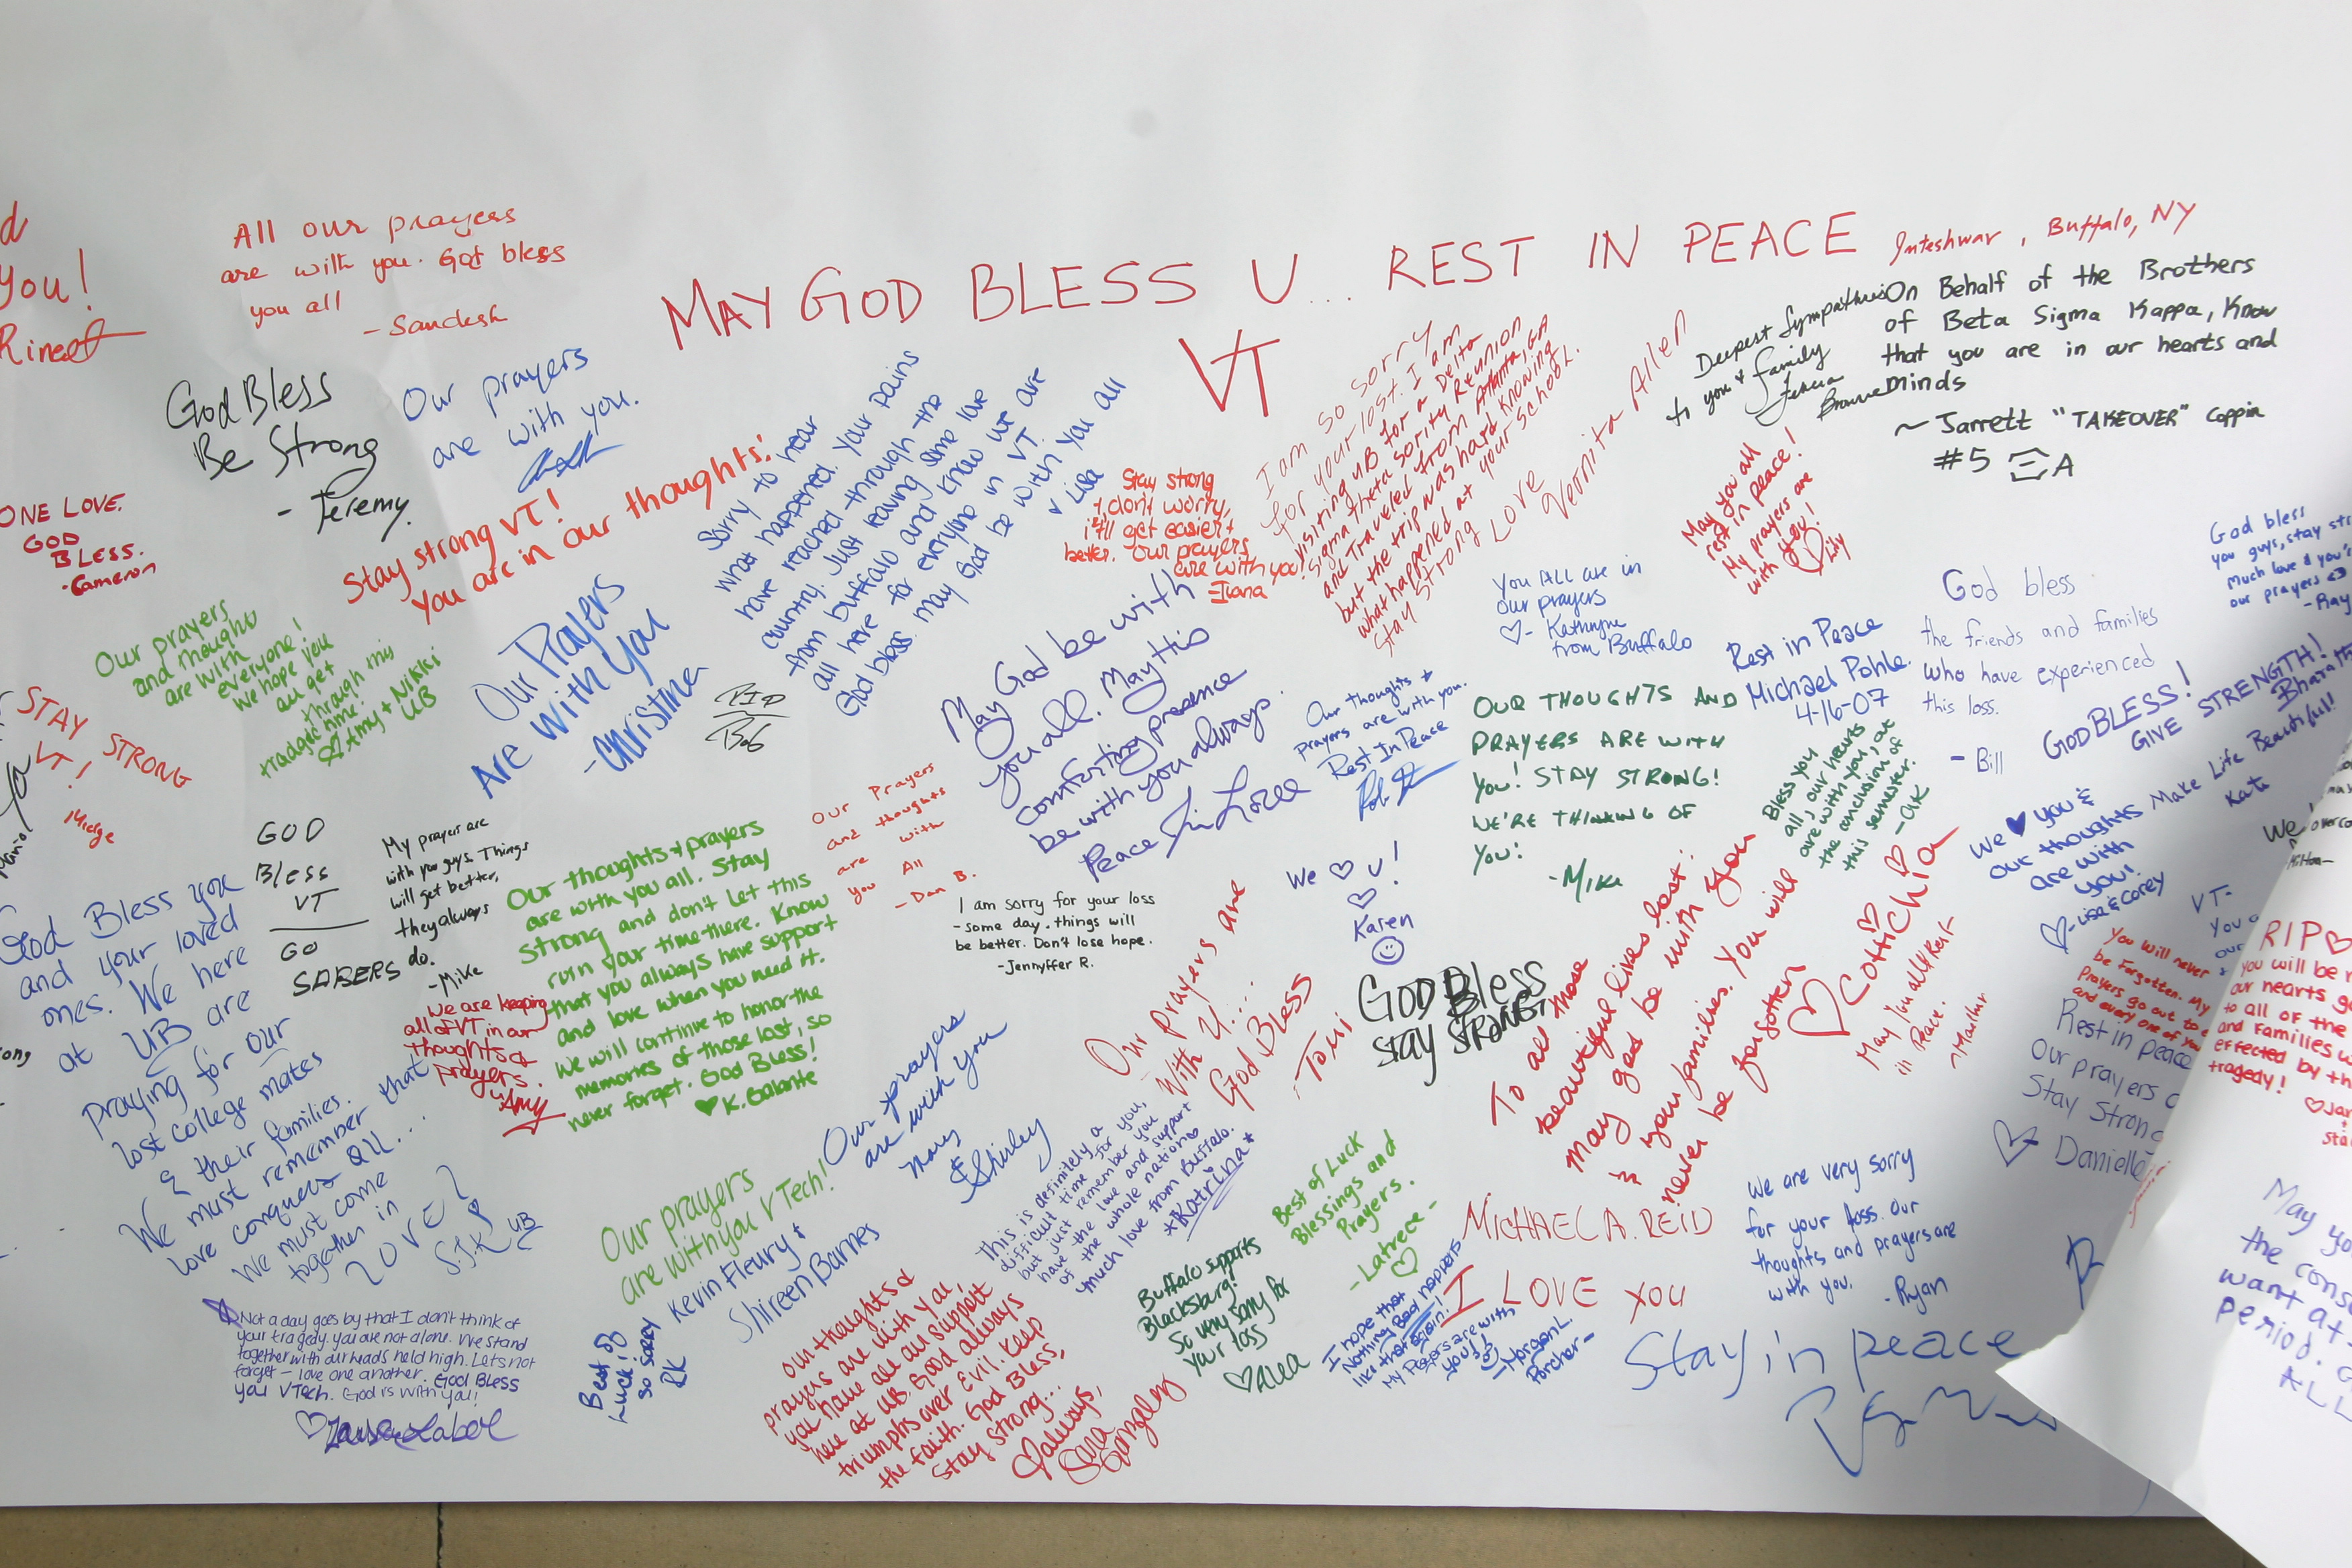 d
You!
All our prayers
are with you. God bless
you all
- Sandesh
MAY GOD BLESS U... REST IN PEACE
Inteshwar, Buffalo, NY
VT
God Bless
Be Strong
- Jeremy.
Our prayers
are with you.
ONE LOVE.
GOD
BLESS.
-Cameron
Stay strong VT!
You are in our thoughts!
Sorry to hear
what happened. Your pains
have reached through the
country. Just leaving some love
from buffalo and know we are
all here for everyone in VT.
God bless. may God be with you all
Lisa
Stay strong
+ don't worry,
it'll get easier +
better. Our prayers
are with you!
I am so sorry
for your lost. I am
visiting UB for a Delta
Sigma Theta Sority Reunion
and Traveled from Atlanta, GA
but the trip was hard knowing
what happened at your school.
Stay Strong Love
Veonita Allen
Deepest Sympathies
to you & family
Felicia
Browne
On Behalf of the Brothers
of Beta Sigma Kappa, Know
that you are in our hearts and
minds
~ Jarrett "TAKEOVER" Coppin
#5 ΞA
May you all
rest in peace!
My prayers are
with you!
♡ Lily
God bless
you guys, stay str
much love & you'r
our prayers <3
-Ray
Our prayers
and thoughts
are with
everyone!
we hope you
all get
through this
tradgic time.
Amy + Nikki
UB
Our Prayers
Are With You
-Christina
RIP
Bob
May God be with
you all. May His
comforting presence
be with you always.
Peace
Our thoughts +
prayers are with you.
Rest In Peace
You All are in
our prayers
♡- Kathryne
from Buffalo
Rest in Peace
Michael Pohle.
4-16-07
God bless
the friends and families
who have experienced
this loss.
- Bill
GOD BLESS!
GIVE STRENGTH!
STAY STRONG
VT!
Midge
OUR THOUGHTS AND
PRAYERS ARE WITH
YOU! STAY STRONG!
WE'RE THINKING OF
YOU!
-MIKE
Bless you
all, our hearts
are with you, at
the conclusion of
this semester.
-aK
Make Life Beautiful!
Kata
We ♥ you &
our thoughts
are with
you!
♡-Lisa & Corey
GOD
Bless
VT
GO
SABERS
My prayer are
with you guys. Things
will get better,
they always
do.
-Mike
Our thoughts + prayers
are with you all. Stay
strong and don't let this
ruin your time there. Know
that you always have support
and love when you need it.
We will continue to honor the
memories of those lost, so
never forget. God Bless!
♥ K. Galante
Our Prayers
and thoughts
are with
you All
- Dan B.
I am sorry for your loss
- some day, things will
be better. Don't lose hope.
-Jennyffer R.
We ♡ U!
♡
Karen
☺
God Bless you
and your loved
ones. We here
at UB are
praying for our
lost college mates
& their families.
We must remember that
love conquers all...
We must come
together in
LOVE!
S.J.K.
UB
We are keeping
all of VT in our
thoughts &
prayers.
Amy
Our Prayers are
With U....
God Bless
-Tomi
GOD Bless
STAY STRONG!
To all those
beautiful lives lost:
May god be with you
& your families. You will
never be forgotten
♡ Cottichia
May you all Rest
in Peace.
~Marthur
VT-
You will never
be Forgotten. My
Prayers go out to
and every one of you
RIP♡
you will be
our hearts g
to all of the
and Families
effected by th
tragedy!
Rest in peace
Our prayers
Stay Strong
♡ Danielle
Our prayers
are with you
Mary
& Shirley
Our prayers
are with you VTech!
Kevin Fleury &
Shireen Barnes
This is definitely a
difficult time for you,
but just remember you
have the love and support
of the whole nation
much love from Buffalo.
*Katrina*
Best of Luck
Blessings and
Prayers.
-Latrece-
♡
MICHAEL A. REID
I LOVE YOU
We are very sorry
for your loss. Our
thoughts and prayers are
with you.
-Ryan
Buffalo supports
Blacksburg!
So very sorry for
your loss
♡Alea
I hope that
Nothing Bad happens
like that again!
My Prayers are with
you!!
-Morgan L.
Porcher-
Not a day goes by that I don't think of
your tragedy. you are not alone. We stand
together with our heads held high. Lets not
forget - love one another. God Bless
you VTech. God is with you!
Best of
Luck!
so sorry
RK
Our thoughts &
prayers are with you,
you have all our support
here at UB. Good always
triumphs over Evil. Keep
the faith. God Bless,
Stay Strong...
♡always,
Sara
Gonzalez
Stay in peace
May yo
the cons
want at
period.
ALL